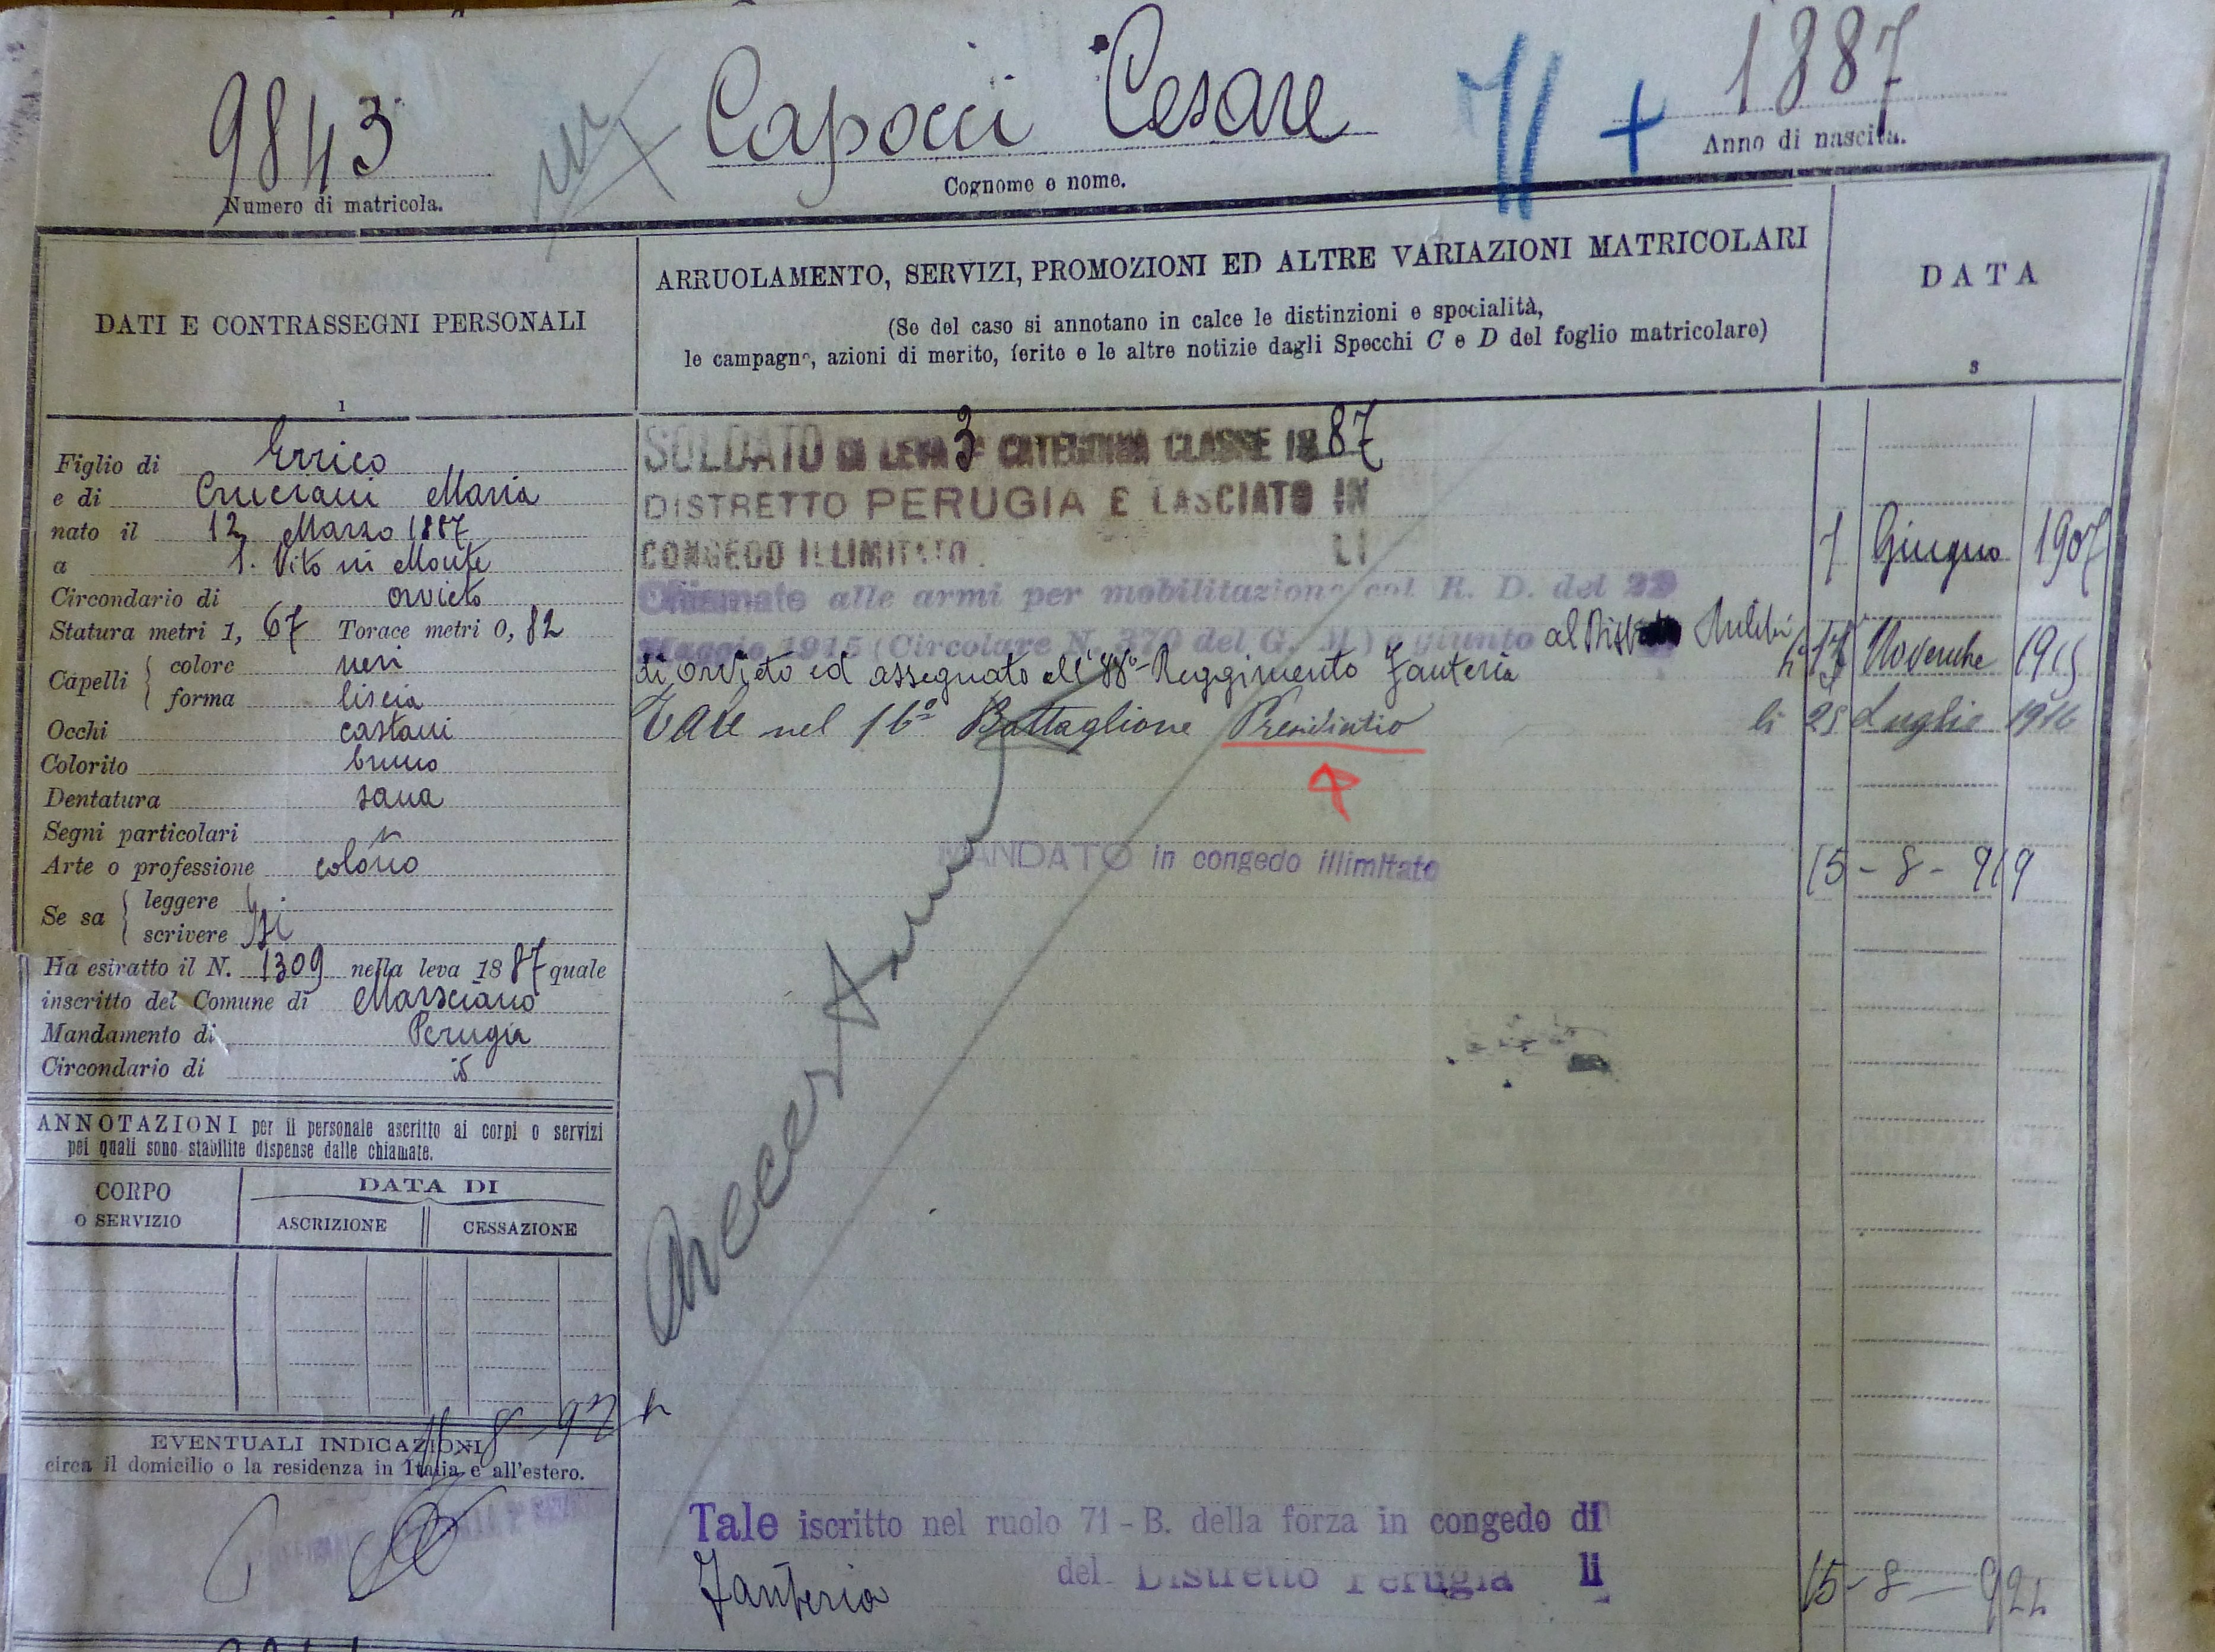 9843
Numero di matricola.
Capocci Cesare
Cognome e nome.
1887
Anno di nascita.
DATI E CONTRASSEGNI PERSONALI
1
Figlio di Errico
e di Cruciani Maria
nato il 12 Marzo 1887
a S. Vito in Monte
Circondario di Orvieto
Statura metri 1, 67 Torace metri 0, 82
Capelli colore neri
forma liscia
Occhi castani
Colorito bruno
Dentatura sana
Segni particolari
Arte o professione colono
Se sa leggere
scrivere si
Ha estratto il N. 1309 nella leva 1887 quale
inscritto del Comune di Marsciano
Mandamento di Perugia
Circondario di id
ANNOTAZIONI per il personale ascritto ai corpi o servizi
pei quali sono stabilite dispense dalle chiamate.
CORPO
O SERVIZIO
DATA DI
ASCRIZIONE
CESSAZIONE
EVENTUALI INDICAZIONI
circa il domicilio o la residenza in Italia e all'estero.
ARRUOLAMENTO, SERVIZI, PROMOZIONI ED ALTRE VARIAZIONI MATRICOLARI
(Se del caso si annotano in calce le distinzioni e specialità,
le campagne, azioni di merito, ferite e le altre notizie dagli Specchi C e D del foglio matricolare)
DATA
3
SOLDATO DI LEVA 3ª CATEGORIA CLASSE 1887
DISTRETTO PERUGIA E LASCIATO IN
CONGEDO ILLIMITATO LI 1 Giugno 1907
Chiamato alle armi per mobilitazione col R. D. del 22
Maggio 1915 (Circolare N. 370 del G. M.) e giunto al
di Orvieto ed assegnato all'88º Reggimento Fanteria Novembre 1915
Tale nel 16º Battaglione Presidiario li 25 Luglio 1916
MANDATO in congedo illimitato 15-8-919
Tale iscritto nel ruolo 71-B. della forza in congedo di
Fanteria del Distretto Perugia li 15-8-924